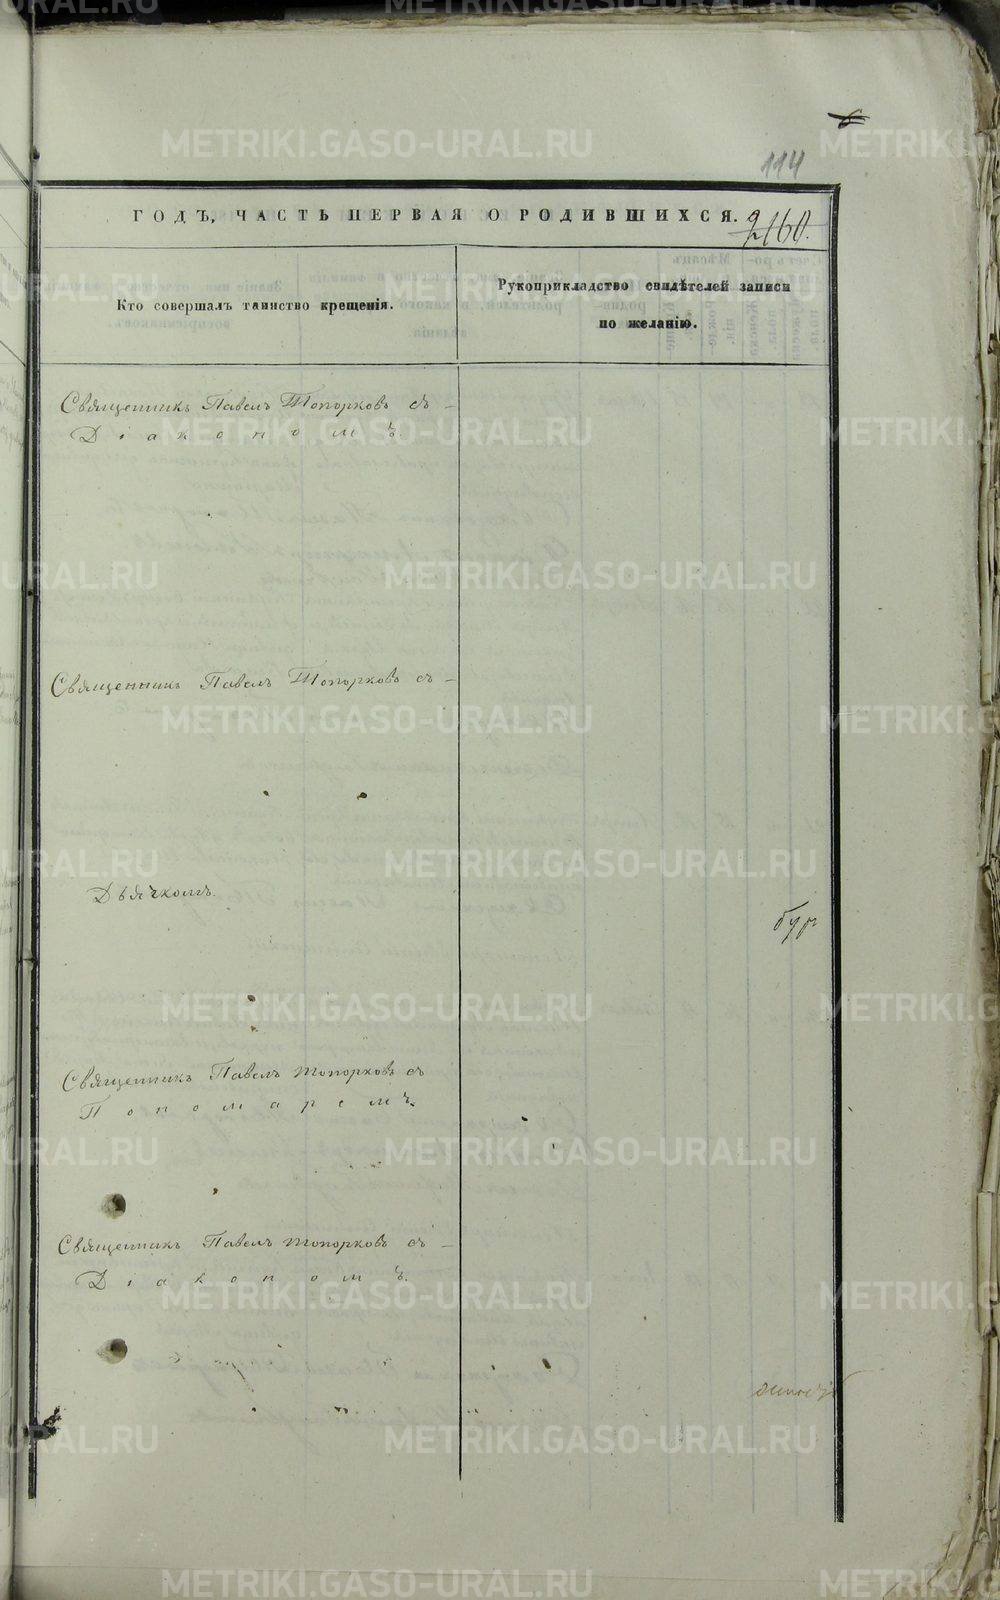 114
ГОДЪ, ЧАСТЬ ПЕРВАЯ О РОДИВШИХСЯ.
2160.
Кто совершалъ таинство крещенія.
Рукоприкладство свидѣтелей записи
по желанію.
Священникъ Павелъ Топорковъ съ
Діакономъ.
Священникъ Павелъ Топорковъ съ
Дьячкомъ.
Священникъ Павелъ Топорковъ съ
Пономаремъ.
Священникъ Павелъ Топорковъ съ
Діакономъ.
METRIKI.GASO-URAL.RU